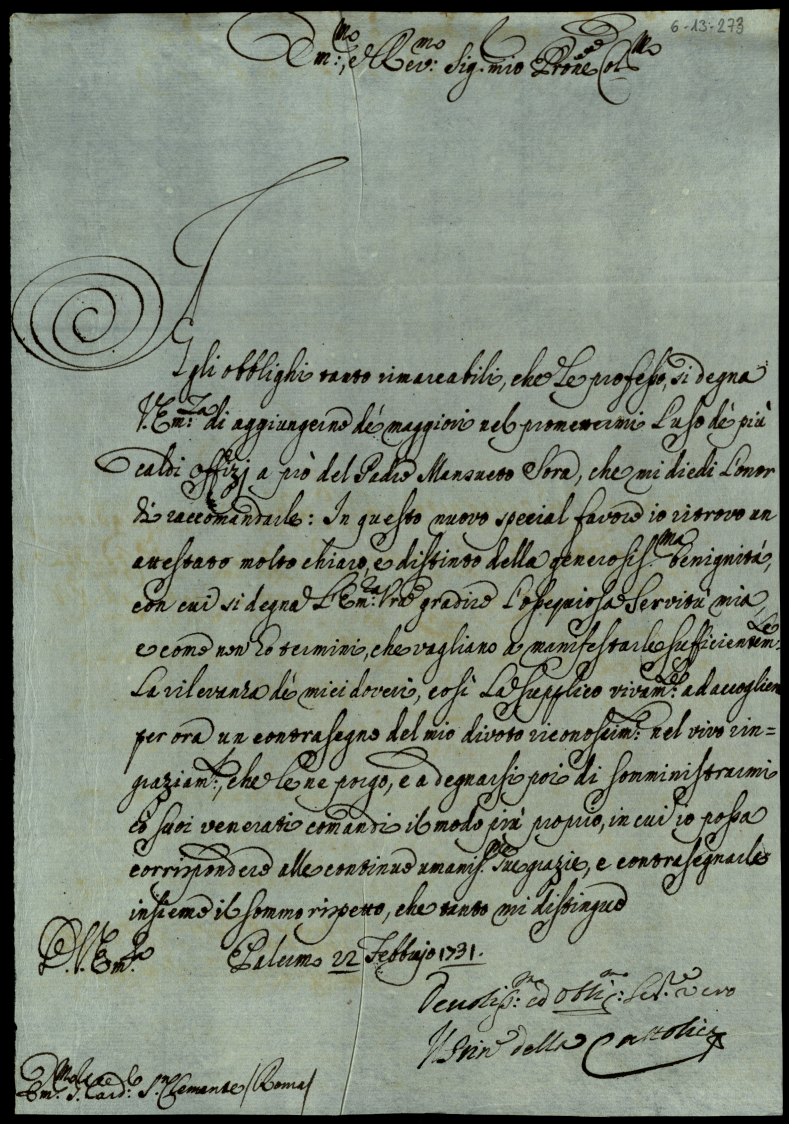 6-13-273
Em:mo, e Rev:mo Sig.r mio Prone Col:mo
Agli obblighi tanto rimarcabili, che Le professo, si degna
V. Em:za di aggiungerne dé maggiori nel promettermi l'uso dé più
caldi offizj a prò del Padre Mansueto Sora, che mi diedi l'onor
di raccomandarle: In questo nuovo special favore io ritrovo un
attestato molto chiaro, e distinto della generosis:ma benignità,
con cui si degna l'Em:za Vra gradire l'ossequiosa Servitù mia,
e come non hò termini, che vagliano a manifestarle sufficientem:te
la rilevanza dé miei doveri, così La supplico vivam:te ad accoglier
per ora un contrasegno del mio divoto riconoscim:to nel vivo rin=
graziam:to, che le ne porgo, e a degnarsi poi di somministrarmi
có suoi venerati comandi il modo più proprio, in cui io possa
corrispondere alle continue umanis:me sue grazie, e contrasegnarle
insieme il sommo rispetto, che tanto mi distingue
D. V. Em:za Palermo 22 Febbrajo 1731.
Devotis:mo ed Obblig:mo Ser:re vero
Il Prin:e della Cattolica
Em:mo S. Card:le S. Clemente / Roma /